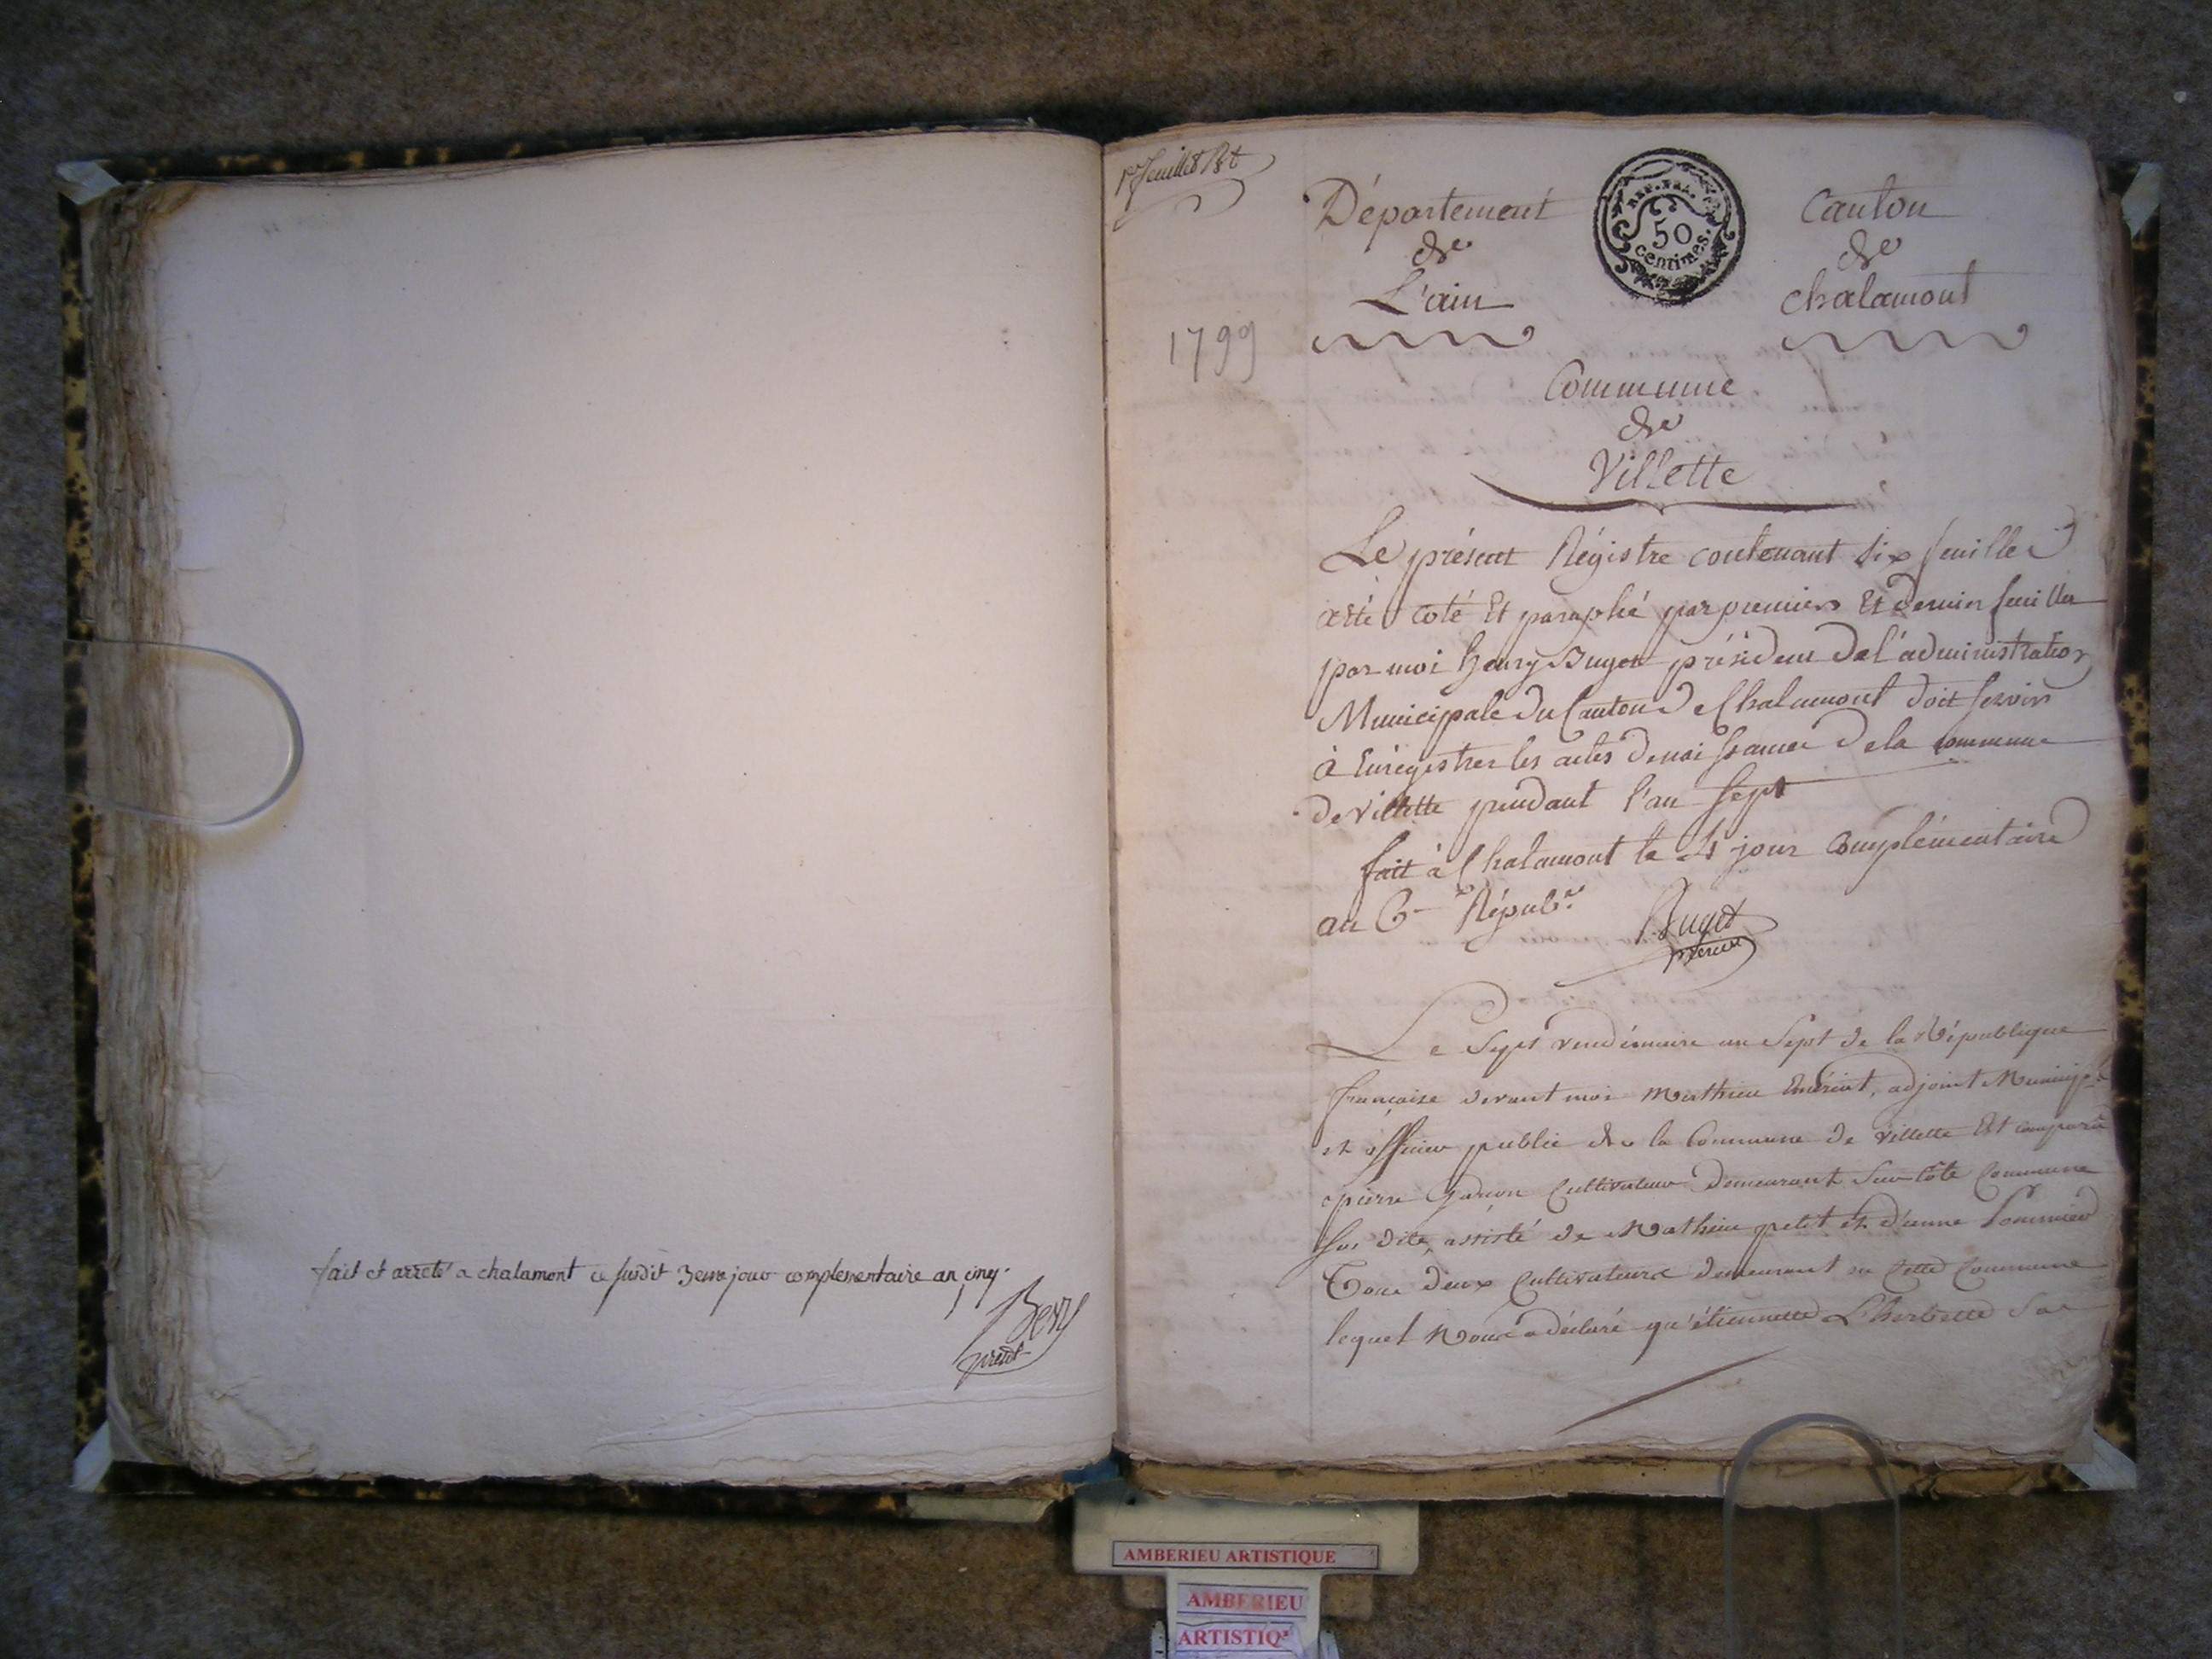 fait et arreté a chalamont ce susdit 3eme jour complementaire an cinq.
Bery
présidt
1er feuillet Bt
Département
de
L'ain
REP. FRA.
50
centimes.
Canton
de
chalamont
1799
Commune
de
Villette
Le présent Régistre contenant six feuilles
a été coté Et paraphé par premier Et dernier feuillet
par moi henry Buget président de l'administration
Municipale du Canton de Chalamont doit servir
à Enrégistrer les actes de naissance de la commune
de villette pendant l'an sept
fait à Chalamont le 4 jour complémentaire
an 6e Républ.
Buget
présidt
Le Sept vendémiaire an Sept de la République
française devant moi Mathieu adjoint Municipal
et officier public de la Commune de villette Est comparu
pierre Cultivateur demeurant Sur côte Commune
sus dite, assisté de Mathieu petit et d'
Tous deux Cultivateurs demeurant en Cette Commune
lequel Nous a déclaré qu'étiennette L'herbette Sa
AMBERIEU ARTISTIQUE
AMBERIEU
ARTISTIQ